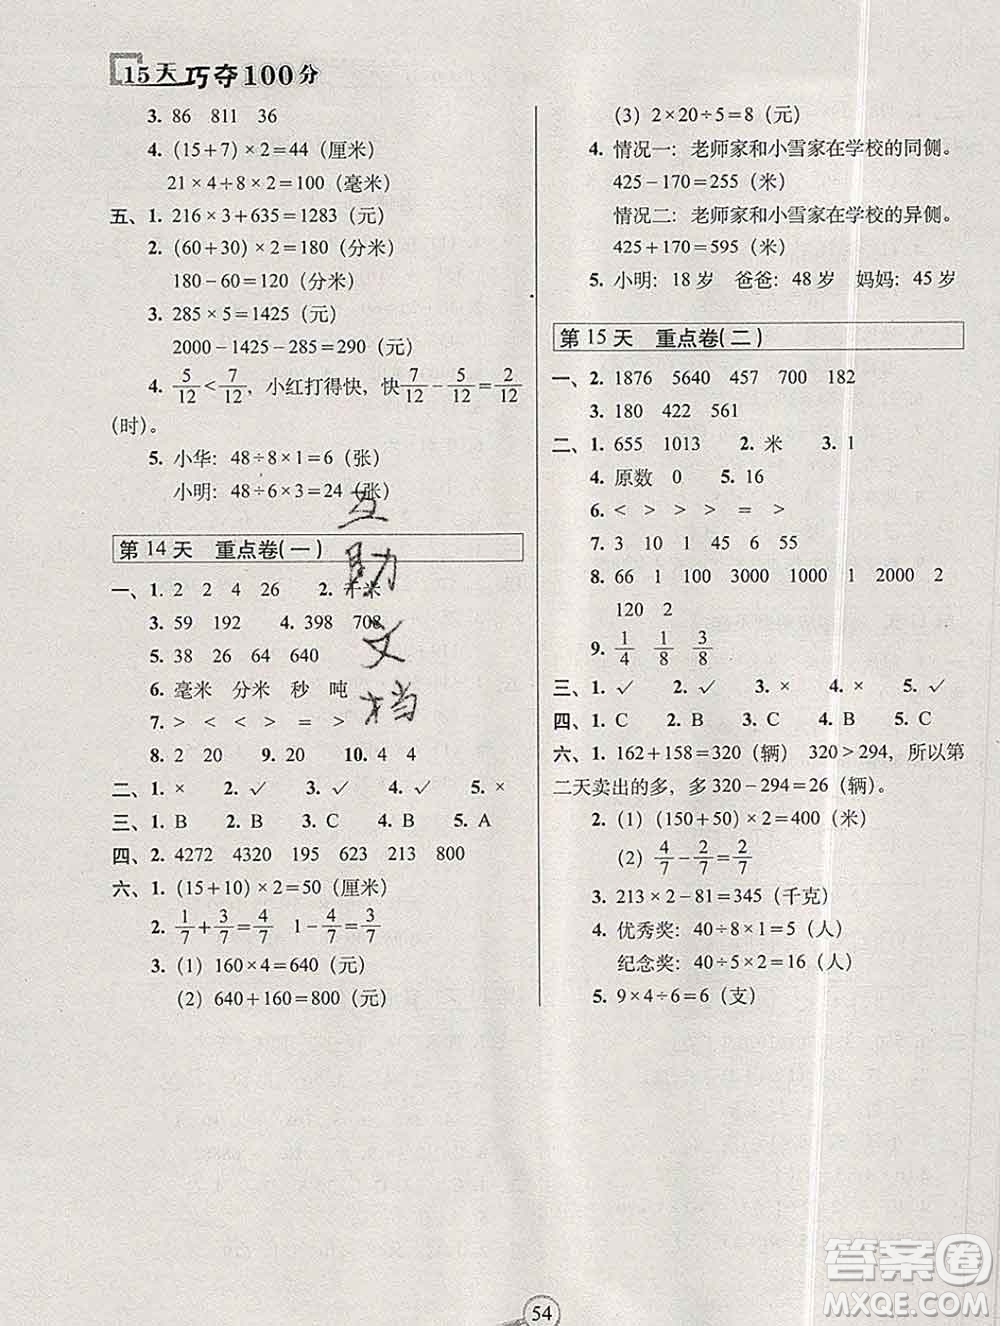 15天巧夺100分
3. 86 811 36
4. (15+7)×2=44(厘米)
21×4÷8×2=100(毫米)
五、1. 216×3+635=1283(元)
2. (60+30)×2=180(分米)
180-60=120(分米)
3. 285×5=1425(元)
2000-1425-285=290(元)
4. 5/12<7/12,小红打得快,快7/12-5/12=2/12
(时)。
5. 小华:48÷8×1=6(张)
小明:48÷6×3=24(张)
第14天 重点卷(一)
一、1. 2 2 4 26 2. 千米
3. 59 192 4. 398 708
5. 38 26 64 640
6. 毫米 分米 秒 吨
7. > < < = >
8. 2 20 9. 20 10. 4 4
二、1. × 2. ✓ 3. ✓ 4. ✓ 5. ×
三、1. B 2. B 3. C 4. B 5. A
四、2. 4272 4320 195 623 213 800
六、1. (15+10)×2=50(厘米)
2. 1/7+3/7=4/7 1-4/7=3/7
3. (1) 160×4=640(元)
(2) 640+160=800(元)
(3) 2×20÷5=8(元)
4. 情况一:老师家和小雪家在学校的同侧。
425-170=255(米)
情况二:老师家和小雪家在学校的异侧。
425+170=595(米)
5. 小明:18岁 爸爸:48岁 妈妈:45岁
第15天 重点卷(二)
一、2. 1876 5640 457 700 182
3. 180 422 561
二、1. 655 1013 2. 米 3. 1
4. 原数 0 5. 16
6. < > > > = >
7. 3 54 45 6 55
8. 66 1 100 3000 1000 2000 2
120 2
9. 1/4 1/8 3/8
三、1. ✓ 2. ✓ 3. × 4. × 5. ✓
四、1. C 2. B 3. B 4. B 5. C
六、1. 162+158=320(辆) 320>294,所以第
二天卖出的多,多320-294=26(辆)。
2. (1) (150+50)×2=400(米)
(2) 4/7-2/7=2/7
3. 213×2-81=345(千克)
4. 优秀奖:40÷8×1=5(人)
纪念奖:40÷5×2=16(人)
5. 9×4÷6=6(支)
互助文档
54
答案圈
MXQE.COM